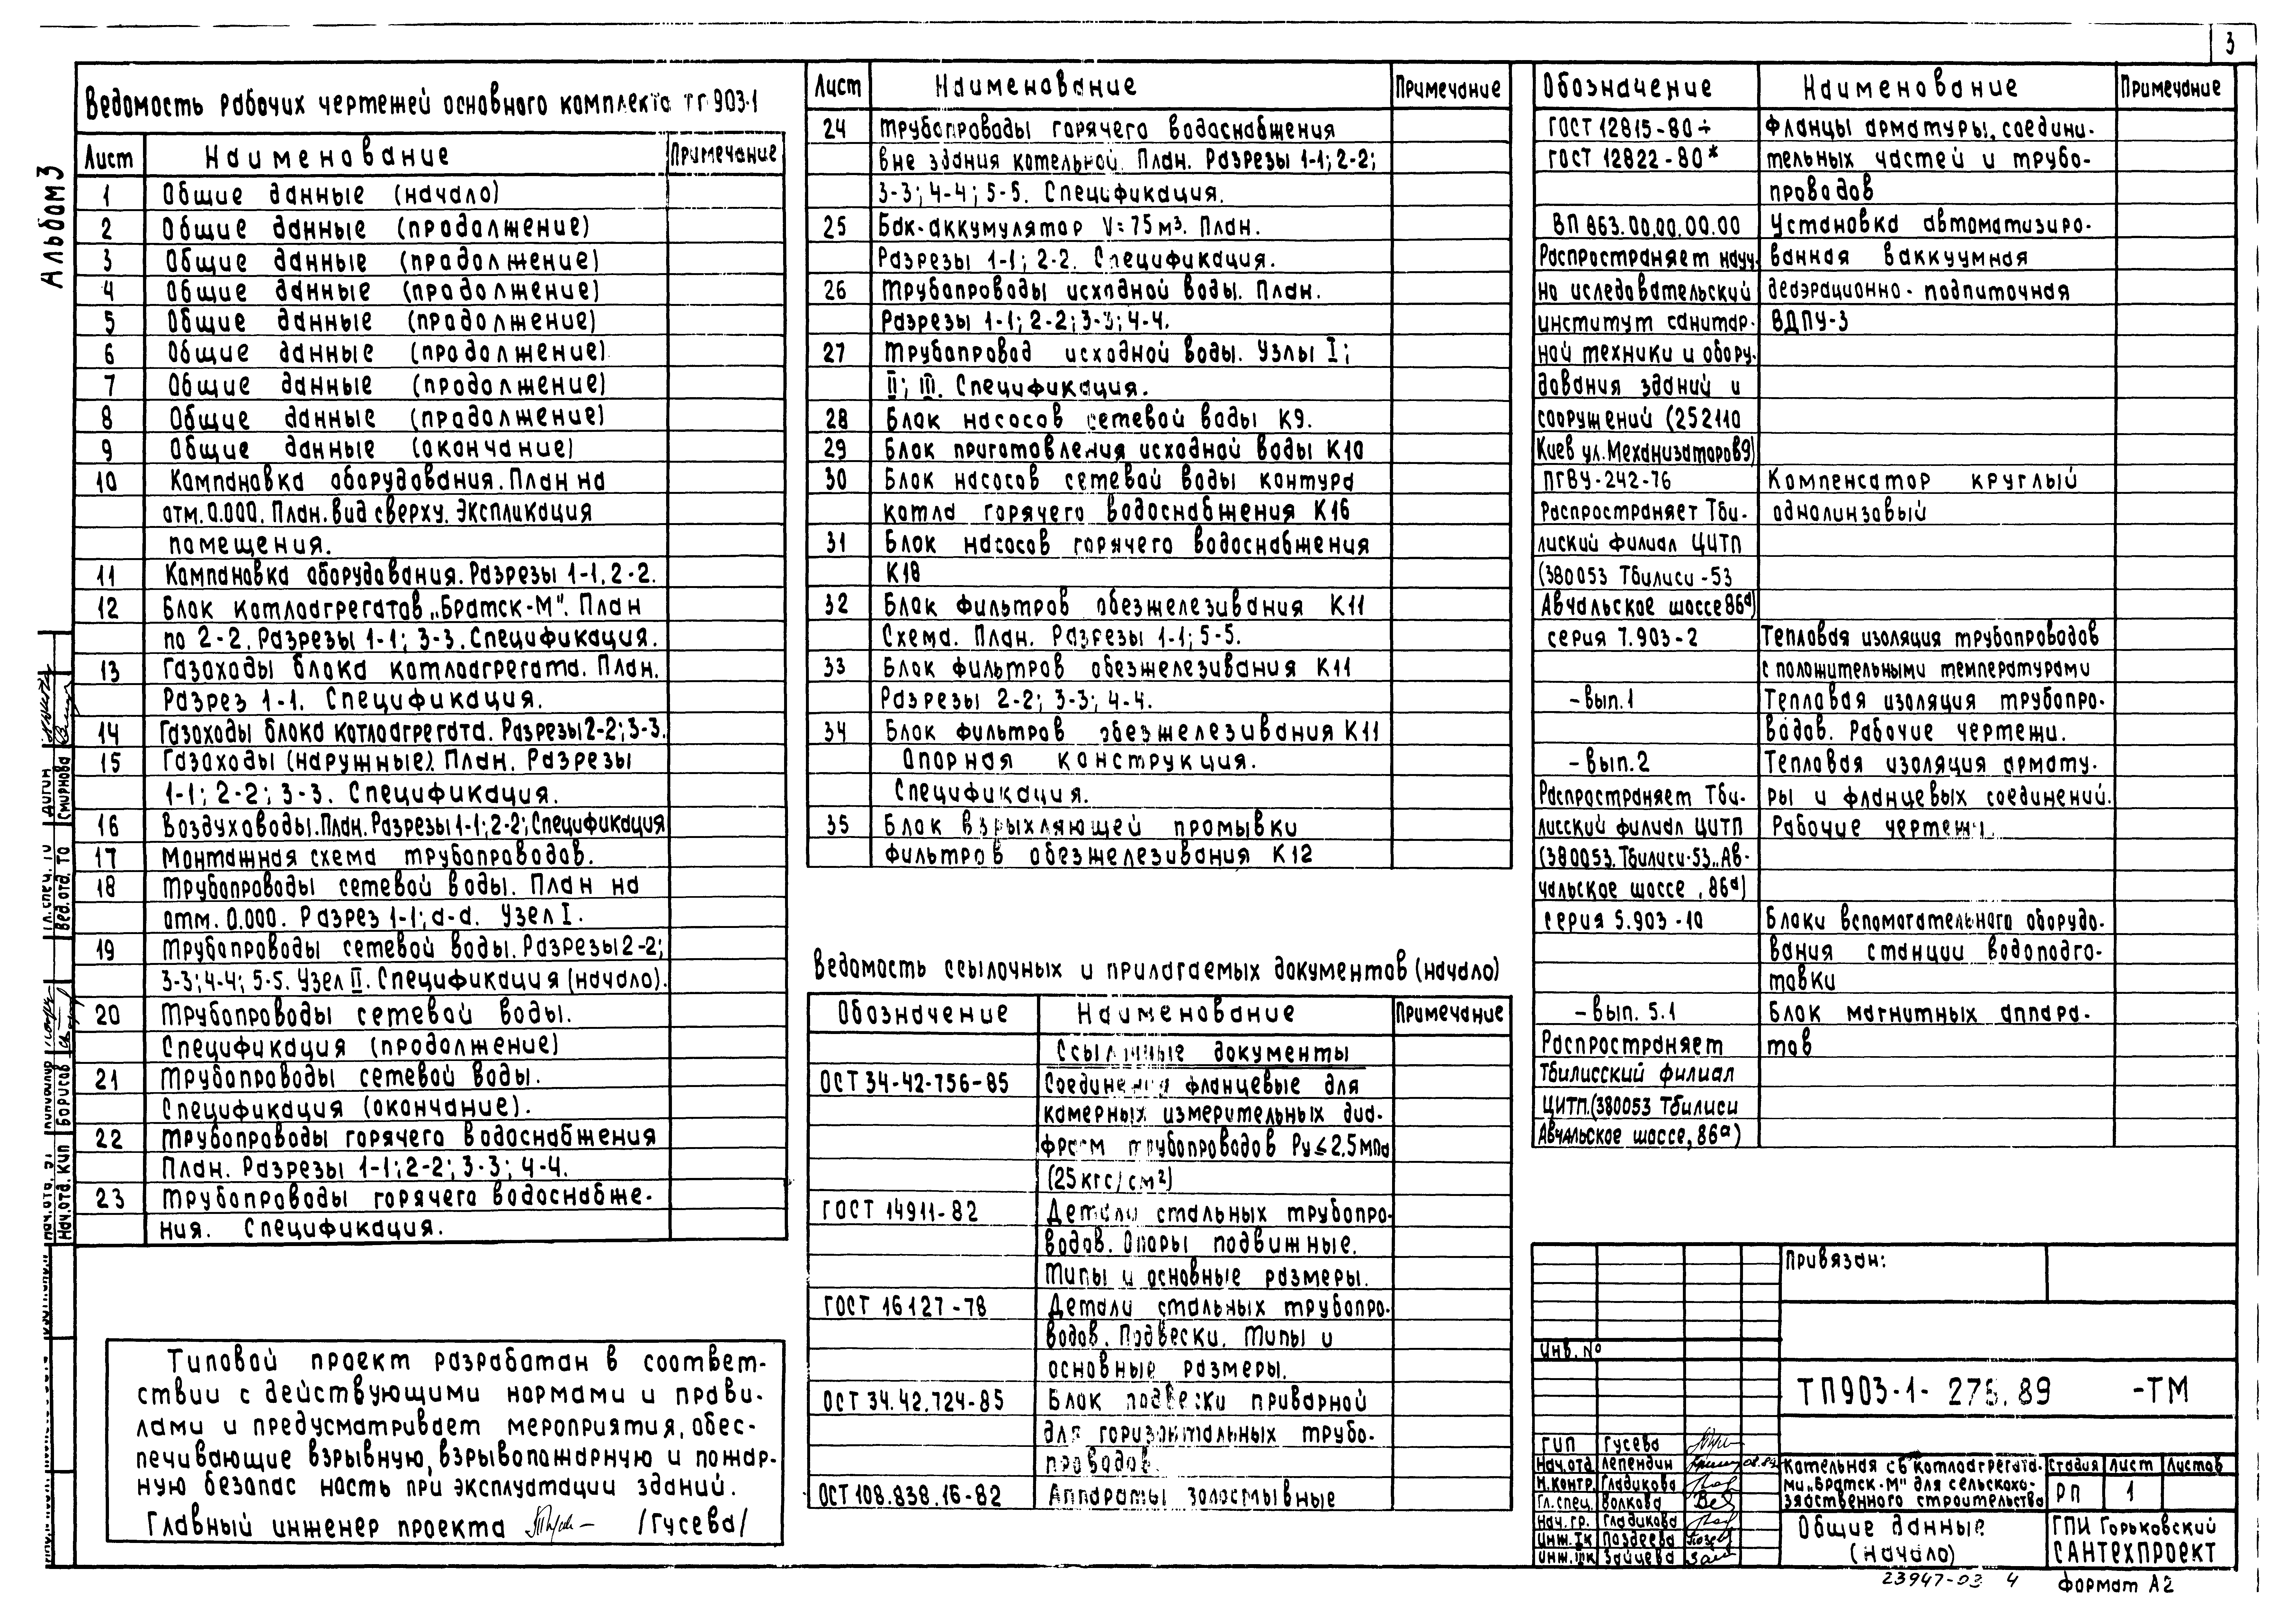 3
Альбом 3
Ведомость рабочих чертежей основного комплекта 903-1
Лист Наименование Примечание
1 Общие данные (начало)
2 Общие данные (продолжение)
3 Общие данные (продолжение)
4 Общие данные (продолжение)
5 Общие данные (продолжение)
6 Общие данные (продолжение)
7 Общие данные (продолжение)
8 Общие данные (продолжение)
9 Общие данные (окончание)
10 Компановка оборудования. План на
отм. 0.000. План. вид сверху. Экспликация
помещения.
11 Компановка оборудования. Разрезы 1-1, 2-2.
12 Блок котлоагрегатов „Братск-М". План
по 2-2. Разрезы 1-1; 3-3. Спецификация.
13 Газоходы блока котлоагрегата. План.
Разрез 1-1. Спецификация.
14 Газоходы блока котлоагрегата. Разрезы 2-2; 3-3.
15 Газоходы (наружные). План. Разрезы
1-1; 2-2; 3-3. Спецификация.
16 Воздуховоды. План. Разрезы 1-1; 2-2; Спецификация
17 Монтажная схема трубопроводов.
18 Трубопроводы сетевой воды. План на
отм. 0.000. Разрез 1-1; а-а. Узел I.
19 Трубопроводы сетевой воды. Разрезы 2-2;
3-3; 4-4; 5-5. Узел II. Спецификация (начало).
20 Трубопроводы сетевой воды.
Спецификация (продолжение)
21 Трубопроводы сетевой воды.
Спецификация (окончание).
22 Трубопроводы горячего водоснабжения
План. Разрезы 1-1; 2-2; 3-3; 4-4.
23 Трубопроводы горячего водоснабже-
ния. Спецификация.
Типовой проект разработан в соответ-
ствии с действующими нормами и прави-
лами и предусматривает мероприятия, обес-
печивающие взрывную, взрывопожарную и пожар-
ную безопас ность при эксплуатации зданий.
Главный инженер проекта /Гусева/
Лист Наименование Примечание
24 Трубопроводы горячего водоснабжения
вне здания котельной. План. Разрезы 1-1; 2-2;
3-3; 4-4; 5-5. Спецификация.
25 Бак-аккумулятор V=75м³. План.
Разрезы 1-1; 2-2. Спецификация.
26 Трубопроводы исходной воды. План.
Разрезы 1-1; 2-2; 3-3; 4-4.
27 Трубопровод исходной воды. Узлы I;
II; III. Спецификация.
28 Блок насосов сетевой воды К9.
29 Блок приготовления исходной воды К10
30 Блок насосов сетевой воды контура
котла горячего водоснабжения К16
31 Блок насосов горячего водоснабжения
К18
32 Блок фильтров обезжелезивания К11
Схема. План. Разрезы 1-1; 5-5.
33 Блок фильтров обезжелезивания К11
Разрезы 2-2; 3-3; 4-4.
34 Блок фильтров обезжелезивания К11
Опорная конструкция.
Спецификация.
35 Блок взрыхляющей промывки
фильтров обезжелезивания К12
Ведомость ссылочных и прилагаемых документов (начало)
Обозначение Наименование Примечание
Ссылочные документы
ОСТ 34-42-756-85 Соединения фланцевые для
камерных измерительных диа-
фрагм трубопроводов Ру≤2,5мПа
(25кгс/см²)
ГОСТ 14911-82 Детали стальных трубопро-
водов. Опоры подвижные.
Типы и основные размеры.
ГОСТ 16127-78 Детали стальных трубопро-
водов. Подвески. Типы и
основные размеры.
ОСТ 34.42.724-85 Блок подвески приварной
для горизонтальных трубо-
проводов.
ОСТ 108.838.16-82 Аппараты золосмывные
Обозначение Наименование Примечание
ГОСТ 12815-80÷ Фланцы арматуры, соедини-
ГОСТ 12822-80* тельных частей и трубо-
проводов
ВП 863.00.00.00.00 Установка автоматизиро-
Распространяет науч- ванная ваккуумная
но иследовательский деаэрационно-подпиточная
институт санитар- ВДПУ-3
ной техники и обору-
дования зданий и
сооружений (252110
Киев ул. Механизаторов 9)
ПГВУ-242-76 Компенсатор круглый
Распространяет Тби- однолинзовый
лиский филиал ЦИТП
(380053 Тбилиси-53
Авчальское шоссе 86а)
серия 7.903-2 Тепловая изоляция трубопроводов
с положительными температурами
-вып.1 Тепловая изоляция трубопро-
водов. Рабочие чертежи.
-вып.2 Тепловая изоляция армату-
Распространяет Тби- ры и фланцевых соединений.
лисский филиал ЦИТП Рабочие чертежи.
(380053. Тбилиси-53 „Ав-
чальское шоссе, 86а)
серия 5.903-10 Блоки вспомогательного оборудо-
вания станции водоподго-
товки
-вып. 5.1 Блок магнитных аппара-
Распространяет тов
Тбилисский филиал
ЦИТП. (380053 Тбилиси
Авчальское шоссе, 86а)
Привязан:
Инв. №
ТП903-1- .89 -ТМ
ГИП Гусева
Нач.отд Лепендин
Н.контр. Гладикова
Гл.спец. Волкова
Нач. гр. Гладикова
Инж. Iк Поздеева
Инж. IIк Зайцева
Котельная с 6 котлоагрегата-
ми „Братск-М" для сельскохо-
зяйственного строительства
Стадия Лист Листов
РП 1
Общие данные
(начало)
ГПИ Горьковский
САНТЕХПРОЕКТ
23947-03 4
Формат А2
Гл. спец. Дигин
Вед. отд. ТО Смирнова
Нач. отд. КИП Борисов